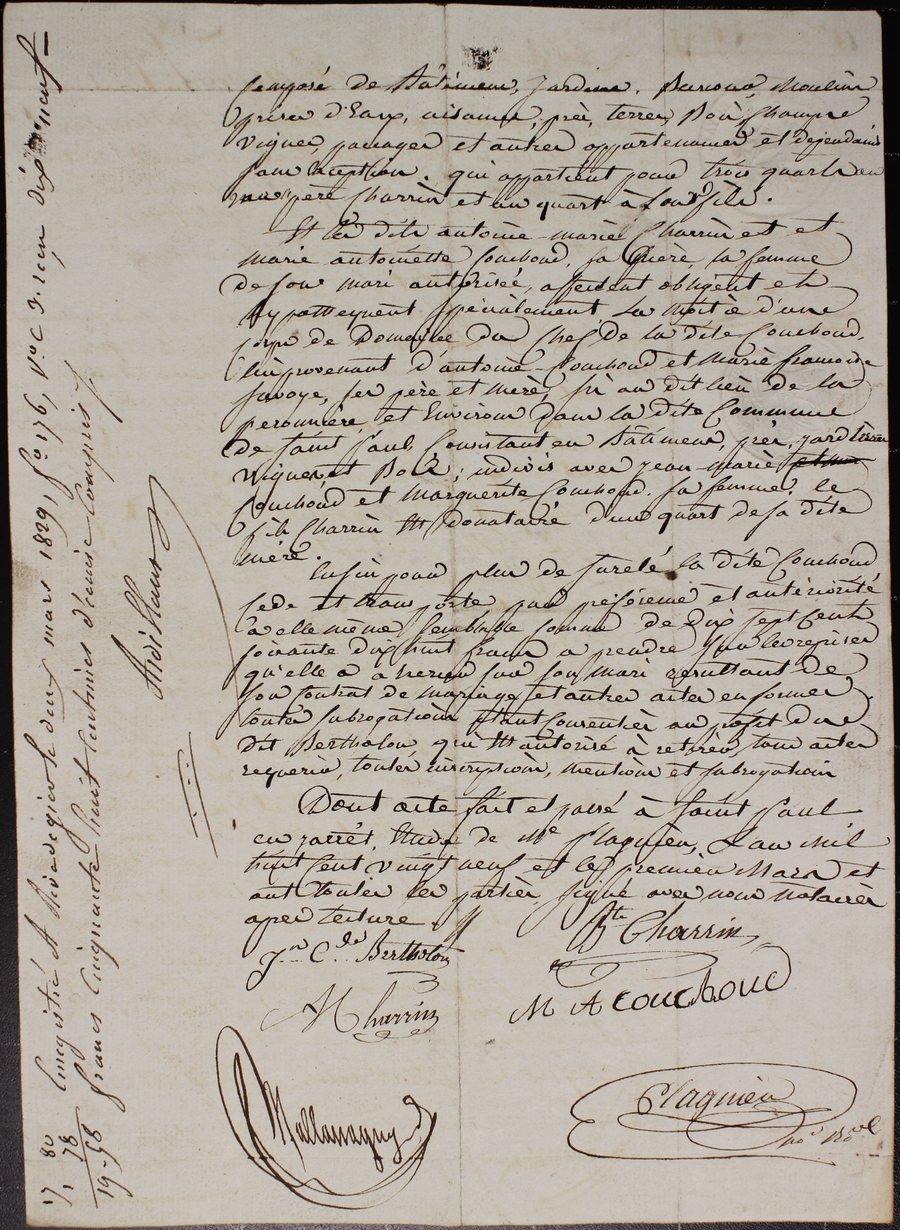 Composé de Bâtimens, Jardins, Moulin
prises d'Eaux, aisances, prés, terres, Bois, Champs
vignes, passages et autres appartenances et dependances
sans exception. qui appartient pour trois quarts au
père Charrin et un quart à son fils.
Et les dits antoine-marie Charrin et
marie antoinette Couchoud, sa femme
de son mari autorisée, affectent obligent et
hypothequent specialement la moitié d'un
corps de Domaine du Chef de la dite Couchoud,
lui provenant d'antoine Couchoud et Marie françoise
Savoye, ses père et mère, sis au dit lieu de la
peronnière, et Environs dans la dite Commune
de Saint Paul, Consistant en Bâtimens, près, jard terres
vignes, et Bois; indivis avec jean-marie
Couchoud et Marguerite Couchoud, sa femme, le
fils Charrin donataire d'un quart de sa dite
mère.
Enfin pour plus de sureté la dite Couchoud
cede et transporte par préférence et antériorité
à elle même semblable somme de dix sept cents
soixante dix huit francs a prendre sur les reprises
qu'elle a à exercer sur son mari résultant de
son contrat de mariage et autres actes en forme
toutes subrogations étant consenties au profit du
dit Bertholon, qui est autorisé à retirer, tous actes
requerir, toutes inscriptions, mentions et subrogations
Dont acte fait et passé à Saint Paul
en jarrêt, Etude de Me Plagnieu, L'an Mil
huit Cent vingt neuf et le premier Mars et
ont toutes les parties signé avec nous notaires
apres lecture.
Bte Charrin
Jn Cde Bertholon
A M Charrin
M A couchoud
Mallassagny
Plagnieu
Enregistré à Rivedegier le deux mars 1829, fo 176, Vo C 3. reçu dix neuf
francs cinquante huit centimes dixième compris
17, 80
1, 78
19-58